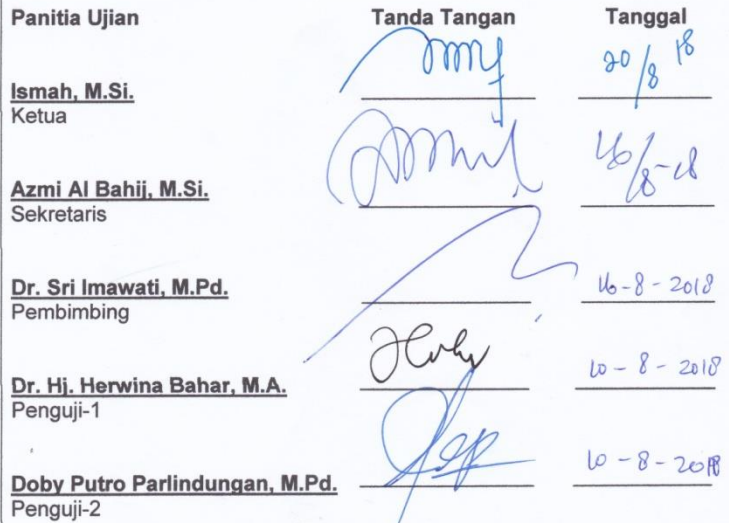 Panitia Ujian Tanda Tangan Tanggal
20/8 18
Ismah, M.Si.
Ketua
16/8-18
Azmi Al Bahij, M.Si.
Sekretaris
16-8-2018
Dr. Sri Imawati, M.Pd.
Pembimbing
10-8-2018
Dr. Hj. Herwina Bahar, M.A.
Penguji-1
10-8-2018
Doby Putro Parlindungan, M.Pd.
Penguji-2